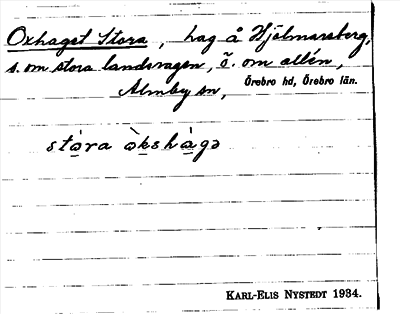 Oxhaget Stora, hag å Hjälmarsberg,
s. om stora landsvägen, ö. om allén,
Almby sn, Örebro hd, Örebro län.
stòra òkshàgə
KARL-ELIS NYSTEDT 1934.